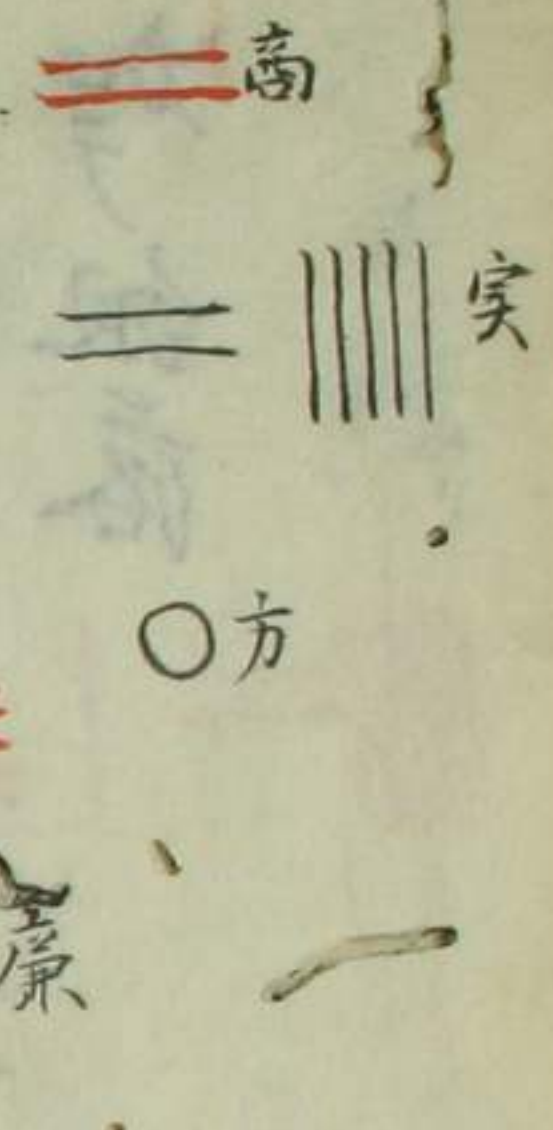 〓 商
〓 ||||| 実
〇 方
廉